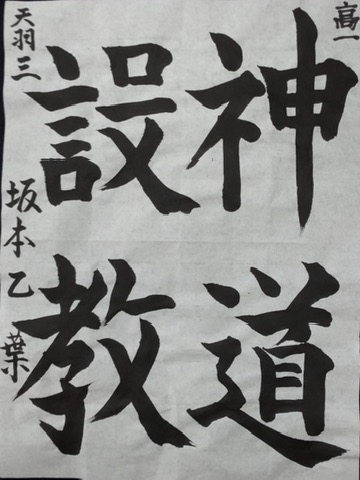 高一
神道
設教
天羽三
坂本乙葉